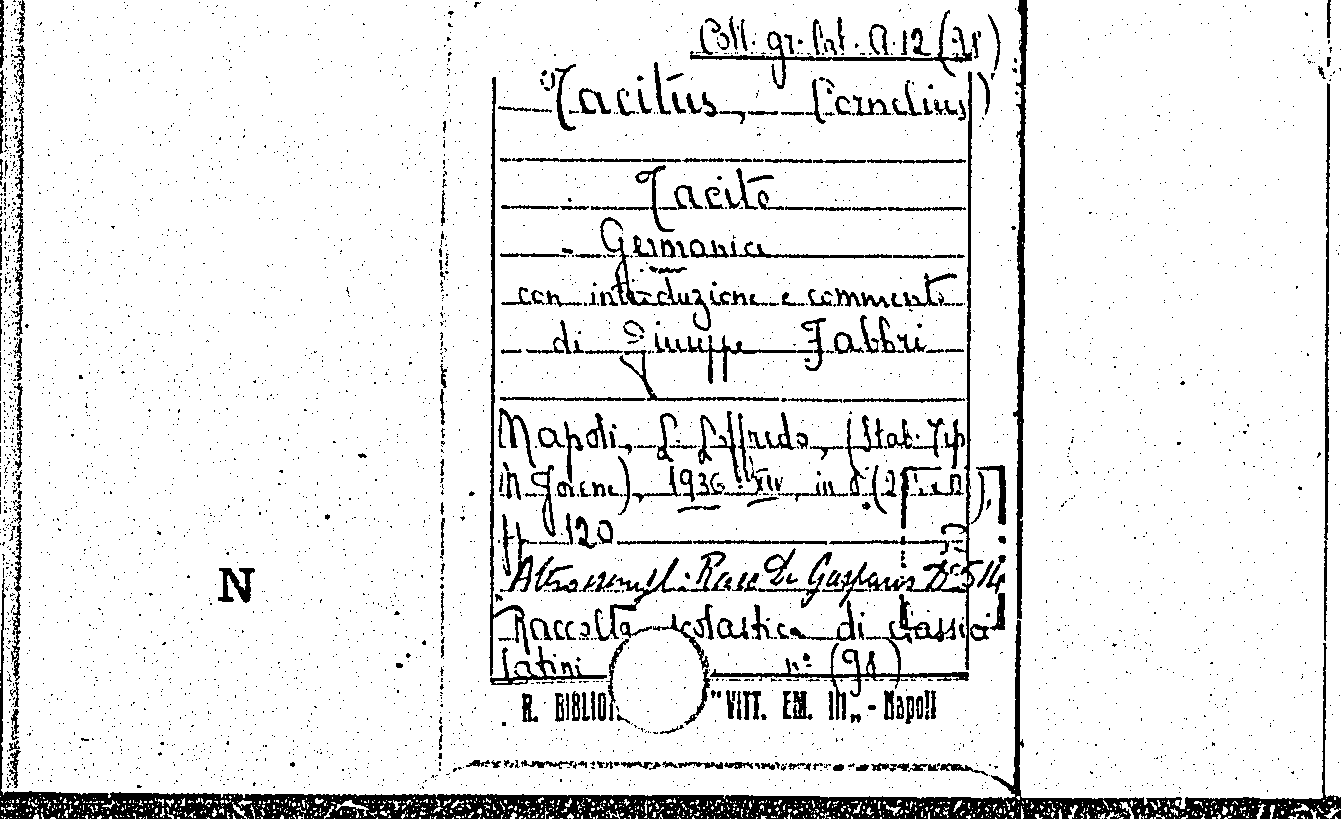 Coll. gr. lat. A. 12 (91)
Tacitus, Cornelius)
Tacito
- Germania
con introduzione e commento
di Giuseppe Fabbri
Napoli, L. Loffredo, (Stab. Tip.
N. Jovene), 1936-XIV, in 8° (
pp. 120
Altro esempl.: Racc. De Gasparis D 514
Raccolta scolastica di classici
latini n° (91)
R. BIBLIOT. "VITT. EM. III„ - Napoli
N